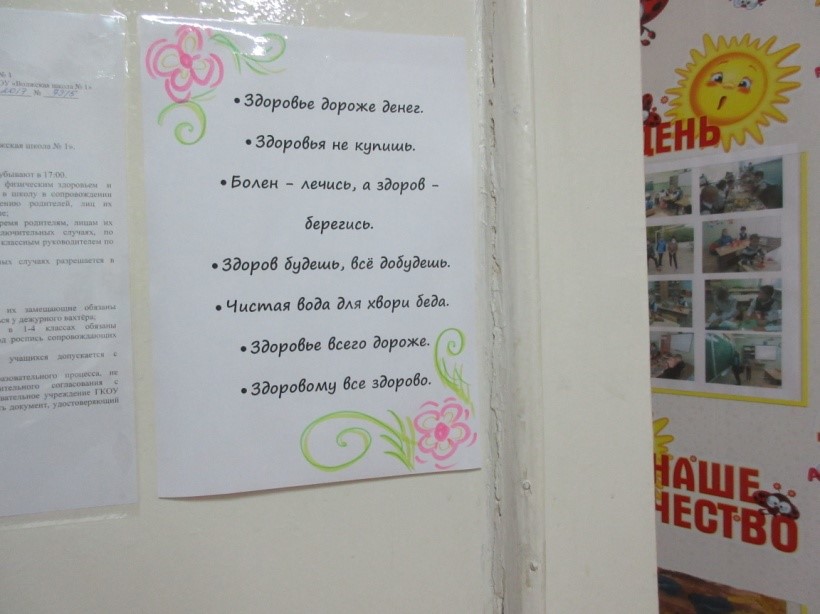 № 1
«Волжская школа № 1»
№
школа № 1».
убывают в 17:00.
физическим здоровьем и
в школу в сопровождении
родителей, лиц их
время родителям, лицам их
случаях, по
классным руководителем по
случаях разрешается в
их замещающие обязаны
у дежурного вахтёра;
в 1-4 классах обязаны
роспись сопровождающих
учащихся допускается с
процесса, не
согласования с
учреждение ГКОУ
документ, удостоверяющий
• Здоровье дороже денег.
• Здоровья не купишь.
• Болен – лечись, а здоров –
берегись.
• Здоров будешь, всё добудешь.
• Чистая вода для хвори беда.
• Здоровье всего дороже.
• Здоровому все здорово.
ДЕНЬ
НАШЕ
ЧЕСТВО